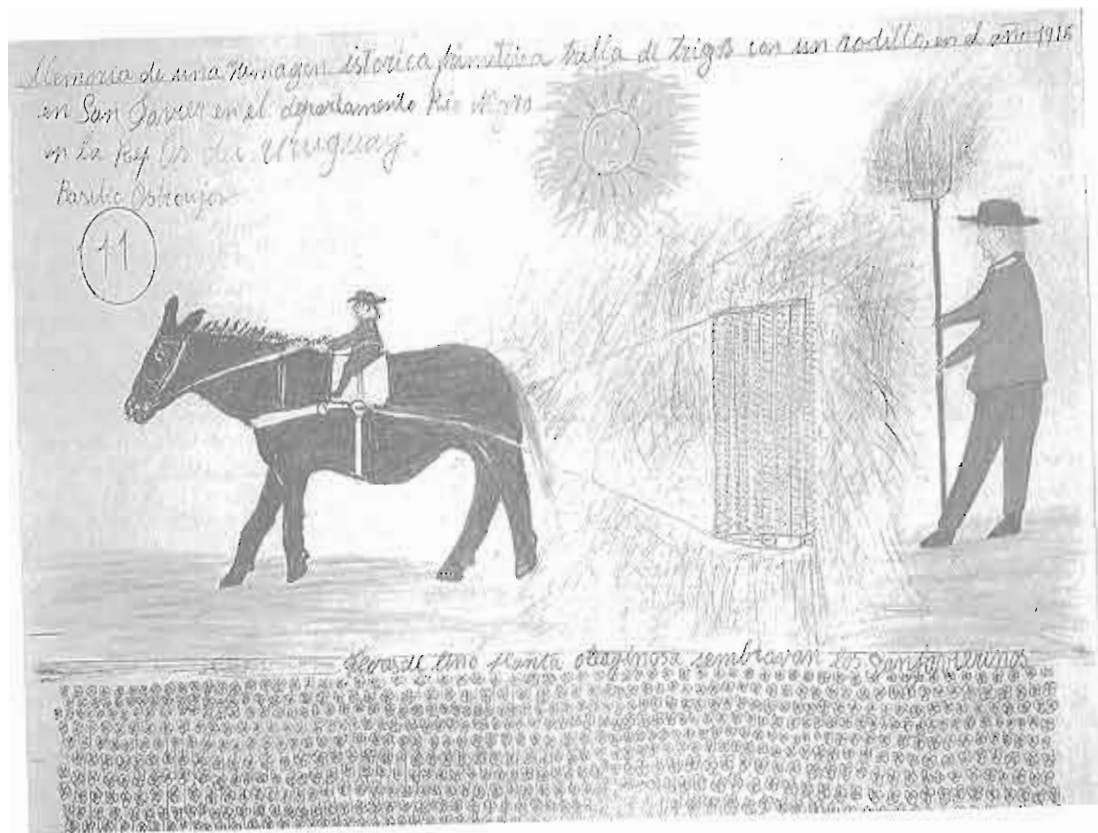 Memoria de una Yemagen istorica primitiva trilla de trigo con un rodillo, en el año 1915
en San Javier en el departamento Río Negro
en la Rep Or del Uruguay.
11
de lino planta oleaginosa sembravan los Sanjavierinos